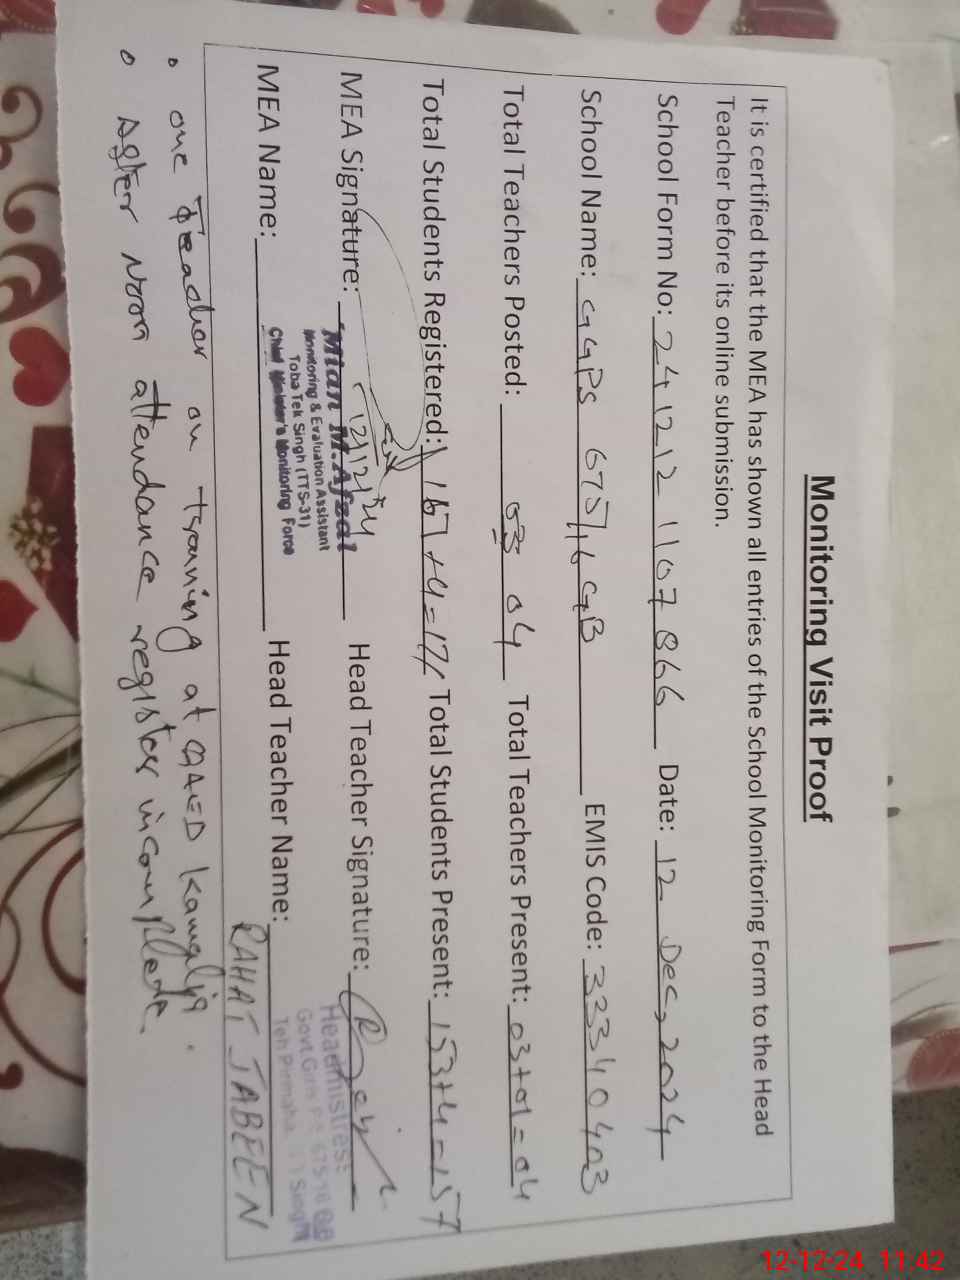 Monitoring Visit Proof
It is certified that the MEA has shown all entries of the School Monitoring Form to the Head
Teacher before its online submission.
School Form No: 24 12 12 1107 866 Date: 12 Dec, 2024
School Name: GGPS 675/16 GB EMIS Code: 33340403
Total Teachers Posted: 04 Total Teachers Present: 03+01=04
Total Students Registered: 167+4=171 Total Students Present: 153+4=157
MEA Signature: 12/12/24 Head Teacher Signature:
Mian M.Afzal
Monitoring & Evaluation Assistant
Toba Tek Singh (TTS-31)
Chief Minister's Monitoring Force
Headmistress
Govt Girls P/S 675-16 GB
Teh Pirmahal Singh
MEA Name: Head Teacher Name: RAHAT JABEEN
• one Teacher on training at QAED Kamalia.
• After Noon attendance register incomplete.
12-12-24 11:42